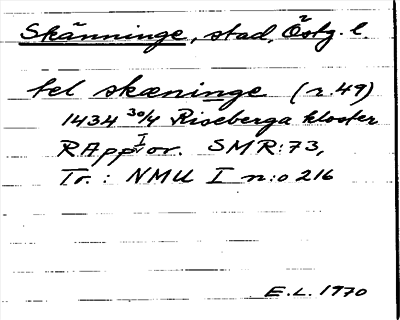 Skänninge, stad, Östg. l.
tel skæninge (r. 49)
1434 30/4 Riseberga kloster
RApp I or. SMR: 73,
Tr.: NMU I n:o 216
E.L. 1970